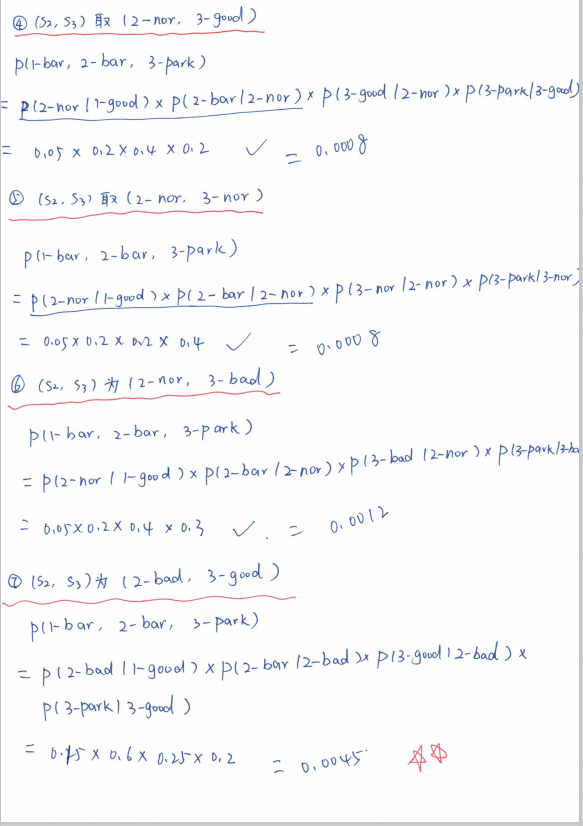 ④ (S2, S3) 取 (2-nor, 3-good)
p(1-bar, 2-bar, 3-park)
= p(2-nor | 1-good) × p(2-bar | 2-nor) × p(3-good | 2-nor) × p(3-park | 3-good)
= 0.05 × 0.2 × 0.4 × 0.2 ✓ = 0.0008
⑤ (S2, S3) 取 (2-nor, 3-nor)
p(1-bar, 2-bar, 3-park)
= p(2-nor | 1-good) × p(2-bar | 2-nor) × p(3-nor | 2-nor) × p(3-park | 3-nor)
= 0.05 × 0.2 × 0.2 × 0.4 ✓ = 0.0008
⑥ (S2, S3) 为 (2-nor, 3-bad)
p(1-bar, 2-bar, 3-park)
= p(2-nor | 1-good) × p(2-bar | 2-nor) × p(3-bad | 2-nor) × p(3-park | 3-ba
= 0.05 × 0.2 × 0.4 × 0.3 ✓. = 0.0012
⑦ (S2, S3) 为 (2-bad, 3-good)
p(1-bar, 2-bar, 3-park)
= p(2-bad | 1-good) × p(2-bar | 2-bad) × p(3-good | 2-bad) ×
p(3-park | 3-good)
= 0.15 × 0.6 × 0.25 × 0.2 = 0.0045 ☆☆